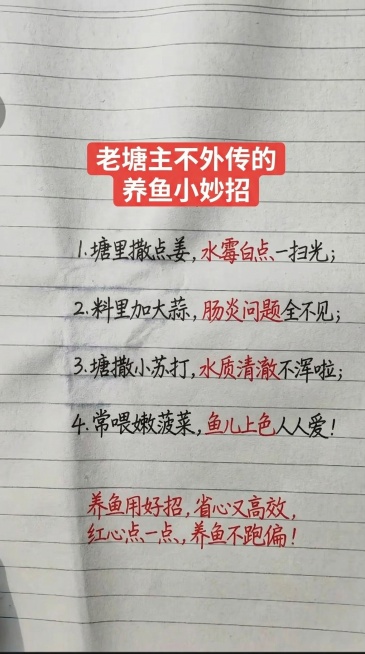 老塘主不外传的
养鱼小妙招
1.塘里撒点姜,水霉白点一扫光;
2.料里加大蒜,肠炎问题全不见;
3.塘撒小苏打,水质清澈不浑啦;
4.常喂嫩菠菜,鱼儿上色人人爱!
养鱼用好招,省心又高效,
红心点一点,养鱼不跑偏!